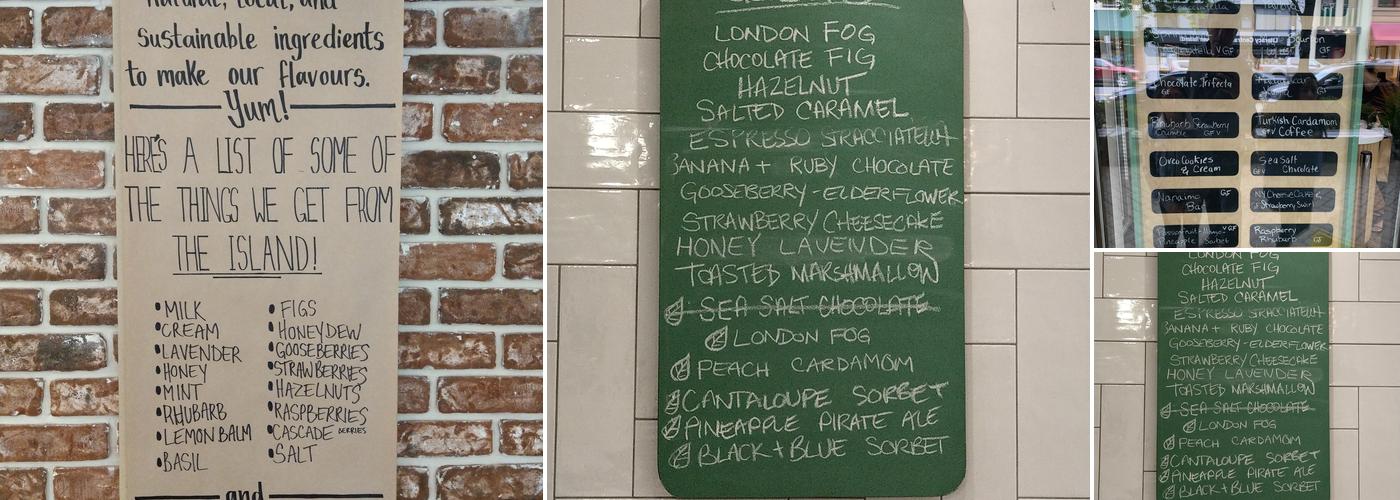 natural, local, and
sustainable ingredients
to make our flavours.
Yum!
HERE'S A LIST OF SOME OF
THE THINGS WE GET FROM
THE ISLAND!
• MILK
• CREAM
• LAVENDER
• HONEY
• MINT
• RHUBARB
• LEMON BALM
• BASIL
• FIGS
• HONEYDEW
• GOOSEBERRIES
• STRAWBERRIES
• HAZELNUTS
• RASPBERRIES
• CASCADE BERRIES
• SALT
and
LONDON FOG
CHOCOLATE FIG
HAZELNUT
SALTED CARAMEL
ESPRESSO STRACCIATELLA
BANANA + RUBY CHOCOLATE
GOOSEBERRY-ELDERFLOWER
STRAWBERRY CHEESECAKE
HONEY LAVENDER
TOASTED MARSHMALLOW
SEA SALT CHOCOLATE
LONDON FOG
PEACH CARDAMOM
CANTALOUPE SORBET
PINEAPPLE PIRATE ALE
BLACK + BLUE SORBET
Chocolate Trifecta
GF
Rhubarb Strawberry
Crumble GF V
Turkish Cardamom
GF V Coffee
Oreo Cookies
& Cream
Sea Salt
GF V Chocolate
Nanaimo GF
Bar
NY Cheese Cake
Strawberry Swirl
Passionfruit-Mango V GF
Pineapple Sorbet
Raspberry
Rhubarb GF
CHOCOLATE FIG
HAZELNUT
SALTED CARAMEL
ESPRESSO STRACCIATELLA
BANANA + RUBY CHOCOLATE
GOOSEBERRY-ELDERFLOWER
STRAWBERRY CHEESECAKE
HONEY LAVENDER
TOASTED MARSHMALLOW
SEA SALT CHOCOLATE
LONDON FOG
PEACH CARDAMOM
CANTALOUPE SORBET
PINEAPPLE PIRATE ALE
BLACK + BLUE SORBET